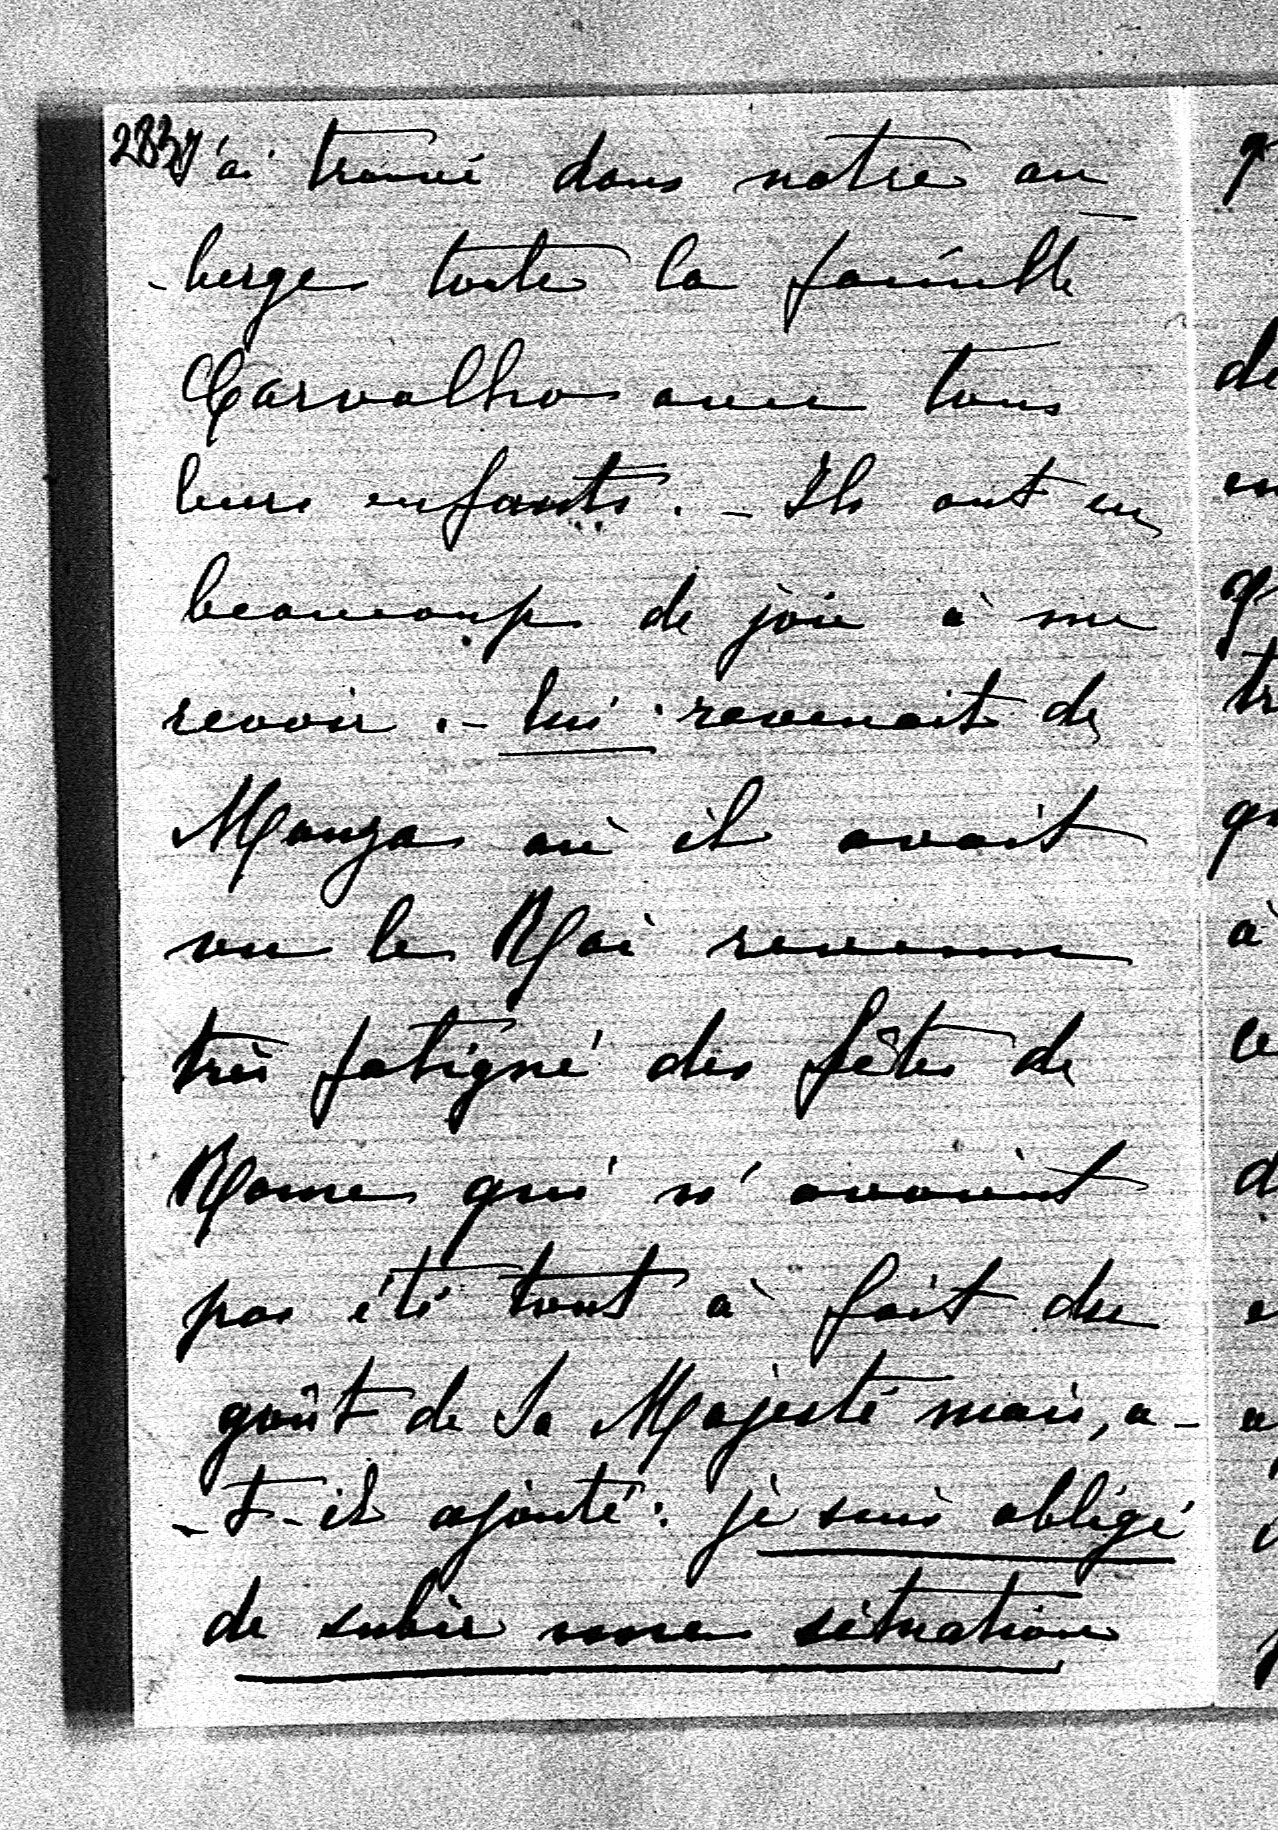 2837 J'ai trouvé dans notre au
-berge toute la famille
Carvalho avec tous
leurs enfants. - Ils ont eu
beaucoup de joie à me
revoir. - lui revenait de
Monza où il avait
vu le Roi revenu
très fatigué des fêtes de
Rome qui n'avaient
pas été tout à fait du
goût de Sa Majesté mais, a-
-t-il ajouté: je suis obligé
de subir une situation